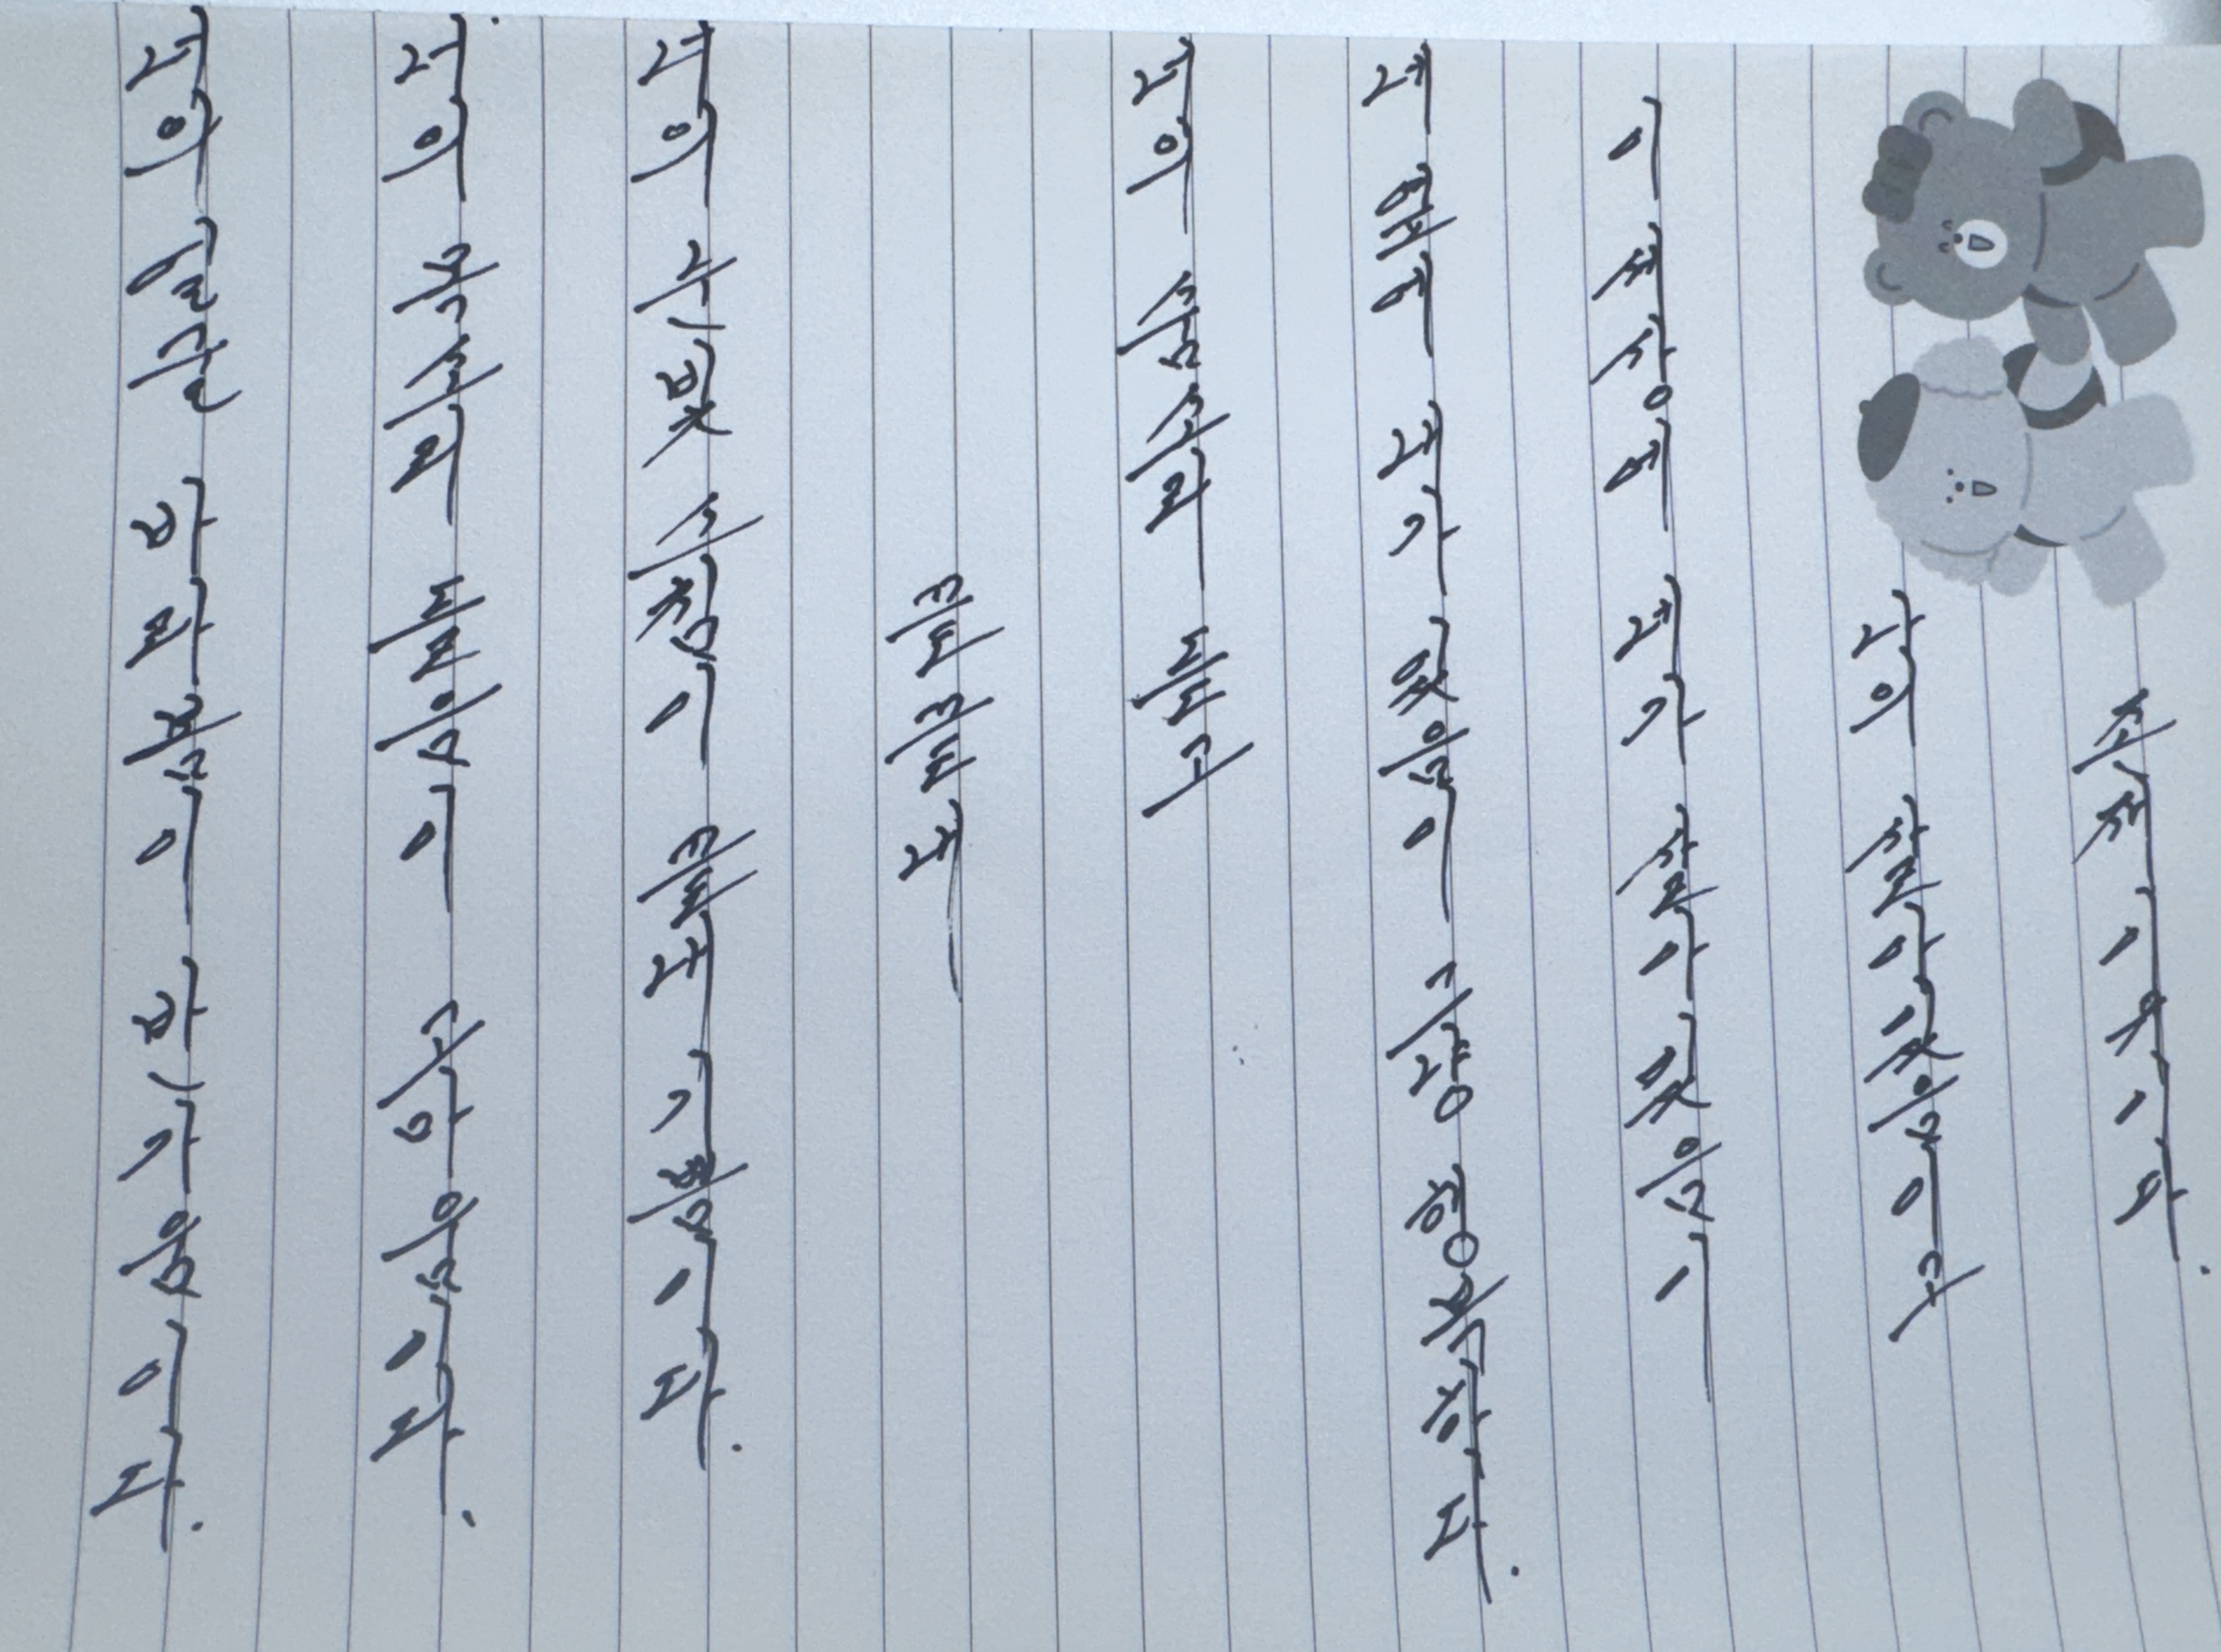 너의 얼굴 바라봄이 반가움이다.
너의 목소리 들음이 고마움이다.
너의 눈빛 스침이 끝내 기쁨이다.
끝끝내
너의 숨소리 듣고
네 옆에 내가 있음이 그냥 행복하다.
이 세상에 네가 살아있음이
나의 살아있음이고
존재 이유이다.